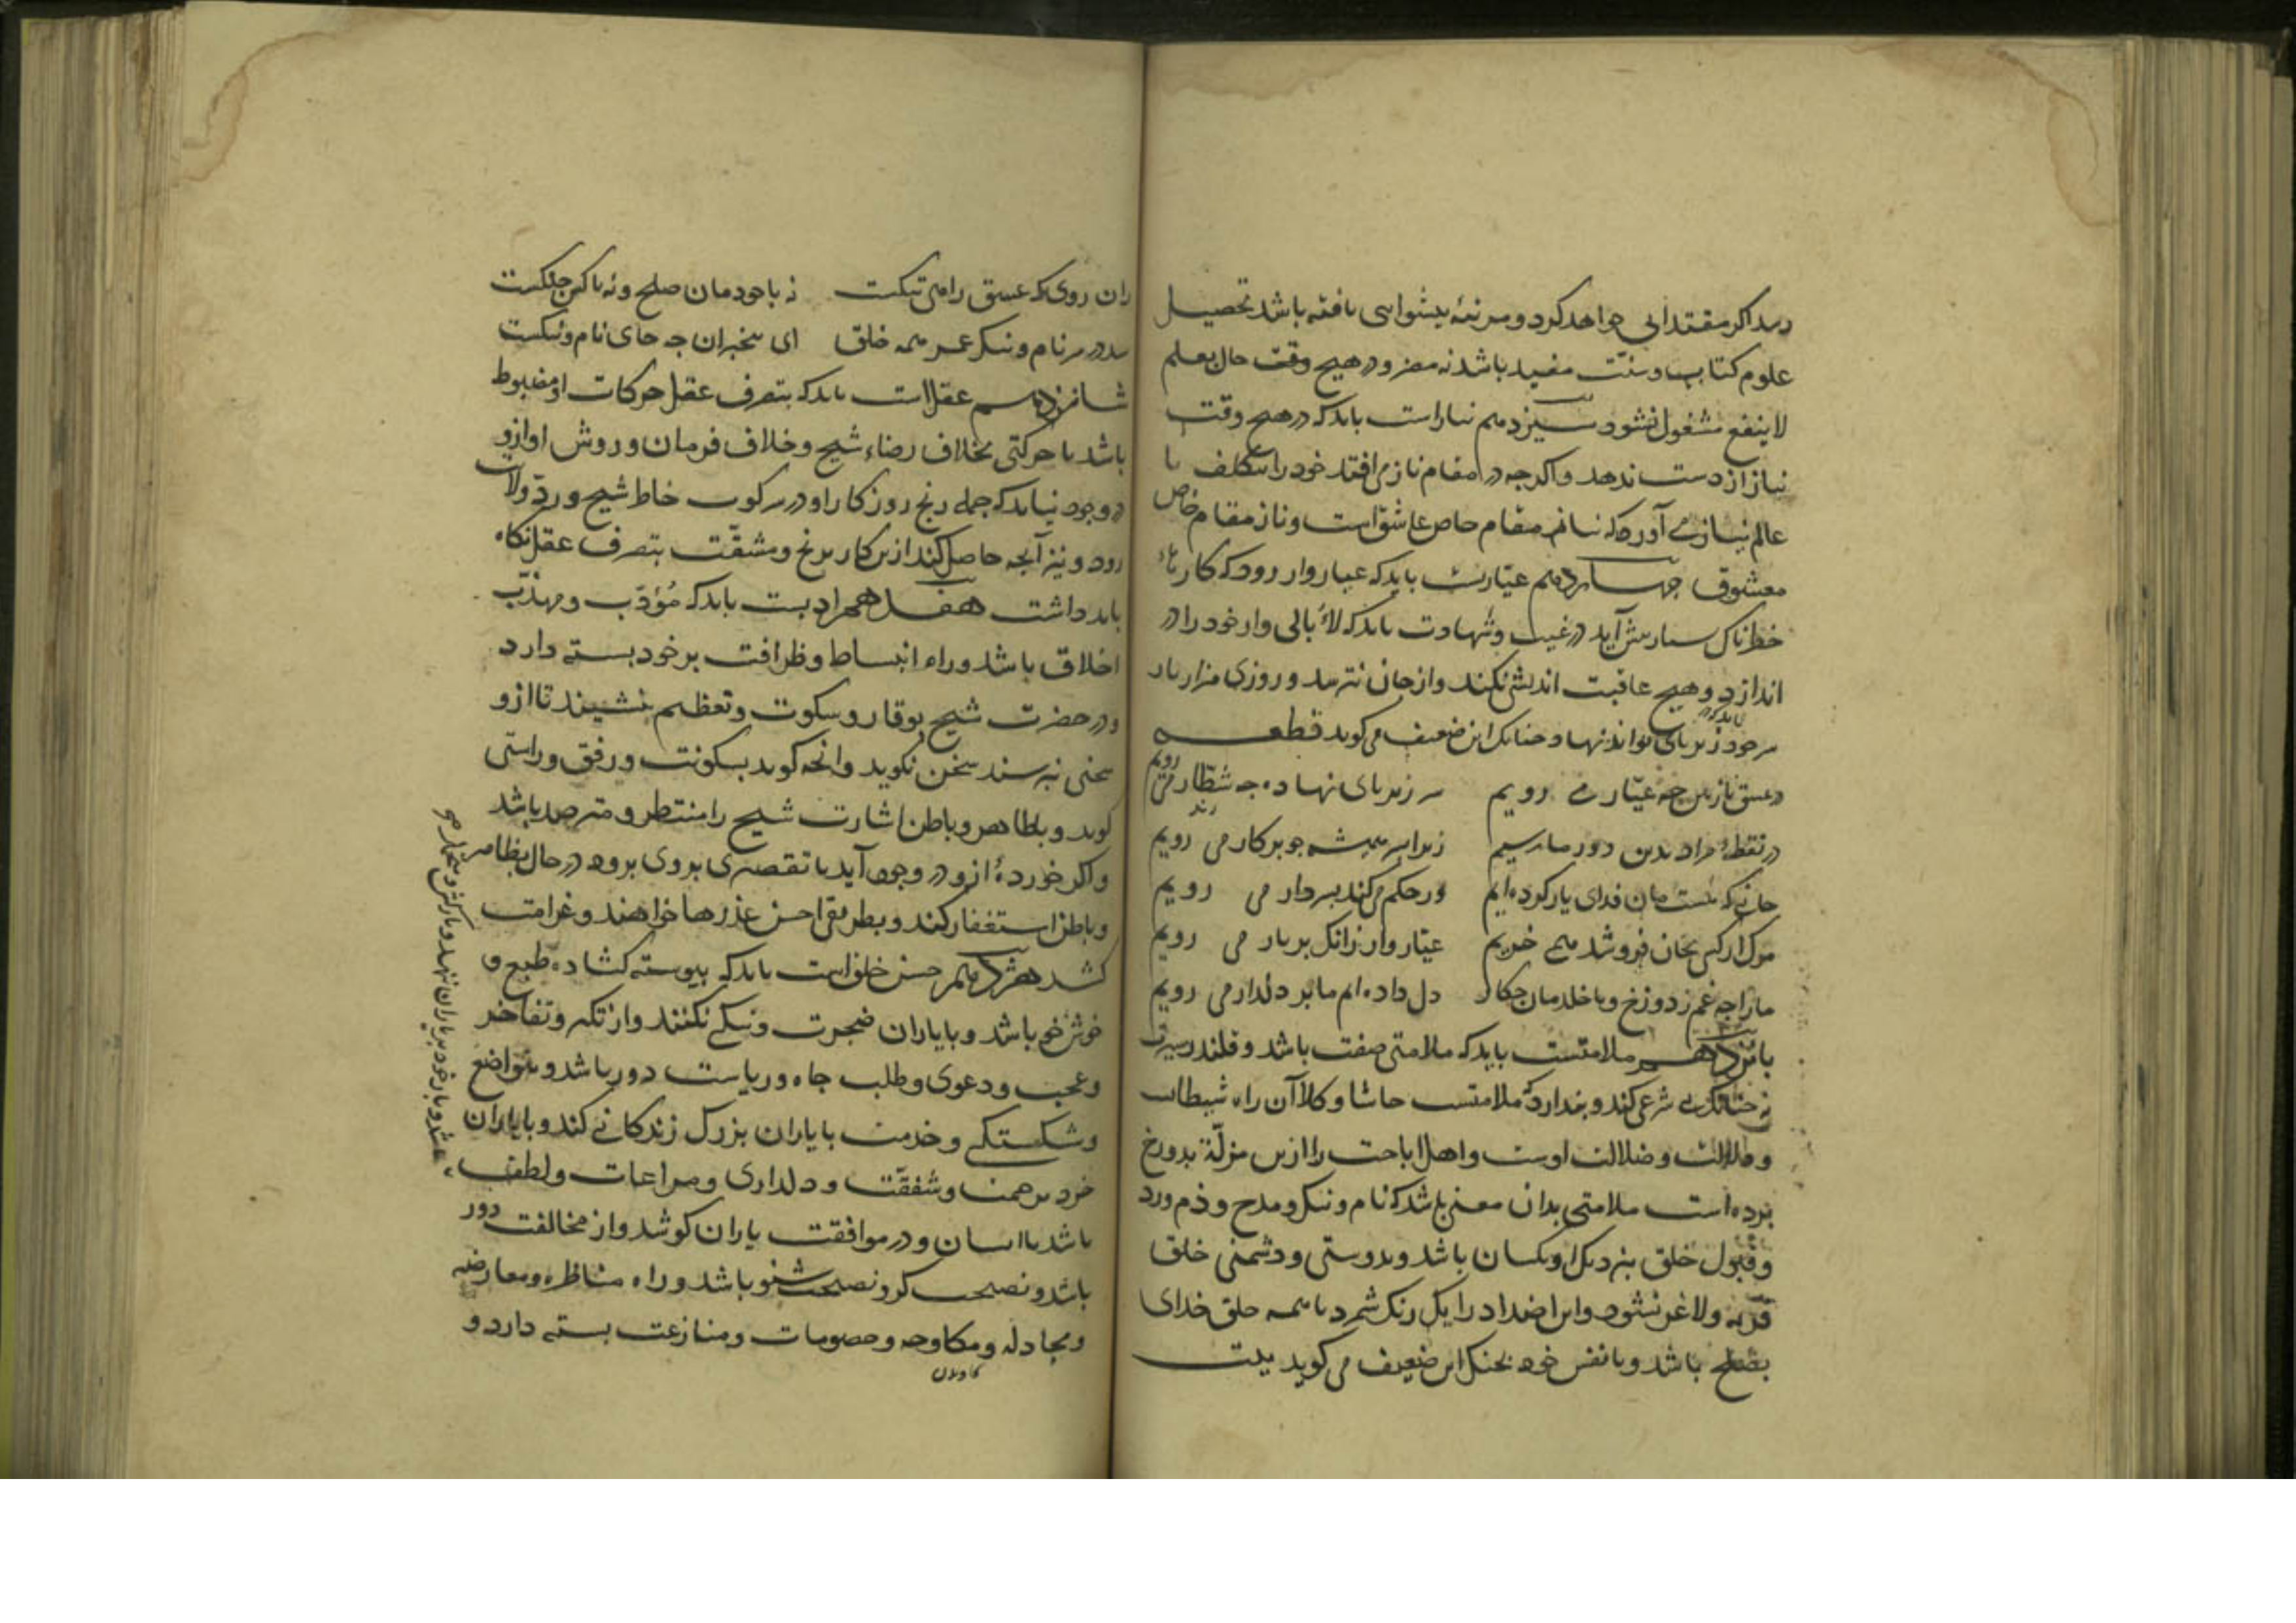 رسد اگر مقتدایی خواهد کرد و مرتبهٔ پیشوایی یافته باشد تحصیل
علوم کتاب و سنّت مفید باشد نه مضر و در هیچ وقت حال بعلم
لا ینفع مشغول نشود سیزدهم نیاز است باید که در هیچ وقت
نیاز از دست ندهد و اگرچه در مقام ناز می افتد خود را بتکلف با
عالم نیاز می آورد که نیاز مقام خاص عاشق است و ناز مقام خاص
معشوق چهاردهم عیّاریست باید که عیاروار رود که کارهاء
خطرناک بسیار پیش آید در غیب و شهادت باید که لاابالی وار خود را در
اندازد و هیچ عاقبت اندیشی نکند و از جان نترسد و روزی هزار بار
باید که در
سر خود زیر پای تواند نهاد چنانک این ضعیف می کوید قطعه
در عشق یار بین چه عیّار می رویم سر زیر پای نهاده چه شطّار می رویم
در نقطهٔ مراد بدین دور ما رسیم زیرا بسر همیشه چو پرکار می رویم
جانی که هست مان فدای یار کرده ایم ور حکم می کند بسر دار می رویم
مرک ار کسی بجان فروشد همی خریم عیّاروار زانک بر یار می رویم
ما را چه غم ز دوزخ و با خلدمان چکار دل داده ایم ما بر دلدار می رویم
پانزدهم ملامتست باید که ملامتی صفت باشد و قلندر سیرت
نه چنانک بی شرعی کند و پندارد که ملامتست حاشا و کلا آن راه شیطان
و ضلالت اوست و اهل اباحت را ازین مزلّة بدوزخ
برده است ملامتی بدان معنی باشد که نام و ننک و مدح و ذم و رد
و قبول خلق بنزدیک او یکسان باشد و بدوستی و دشمنی خلق
فربه و لاغر نشود و این اضداد را یک رنک شمرد با همه خلق خدای
بصلح باشد و با نفس خود بجنک این ضعیف می کوید بیت
زان روی که عشق رامی تنکست نه با خودمان صلح و نه با کس جنکست
شد در سر نام و ننک عمر همه خلق ای بیخبران چه جای نام و ننکست
شانزدهم عقل است باید که بتصرف عقل حرکات او مضبوط
باشد تا حرکتی بخلاف رضاء شیخ و خلاف فرمان و روش او ازو
در وجود نیاید که جمله رنج روزکار او در سر کوب خاطر شیخ و ردّ ولایت
رود و نیز آنچه حاصل کند ازین کار برنج و مشقّت بتصرف عقل نکاه
باید داشت هفدهم ادبست باید که مُؤدّب و مهذّب
اخلاق باشد و راه انبساط و ظرافت بر خود بسته دارد
و در حضرت شیخ بوقار و سکوت و تعظیم نشیند تا ازو
سخنی نپرسند سخن نکوید و آنچه کوید بسکونت و رفق و راستی
کوید و بظاهر و باطن اشارت شیخ را منتظر و مترصد باشد
و اکر خوردهٔ ازو در وجود آید یا تقصیری بروی برود در حال بظاهر
و باطن استغفار کند و بطریق احسن عذرها خواهند و غرامت
کشد هژدهم حسن خلق است باید که پیوسته کشاده طبع و
خوش خوی باشد و با یاران ضجرت و تنکی نکند و از تکبر و تفاخر
و عجب و دعوی و طلب جاه و ریاست دور باشد و بتواضع
و شکستکی و خدمت با یاران بزرک زندکانی کند و با یاران
خرد برحمت و شفقّت و دلداری و مراعات و لطف
باشد با ایشان و در موافقت یاران کوشد و از مخالفت دور
باشد و نصیحت کر و نصیحت شنو باشد و راه مناظره و معارضه
و مجادله و مکاوحه و خصومات و منازعت بسته دارد و